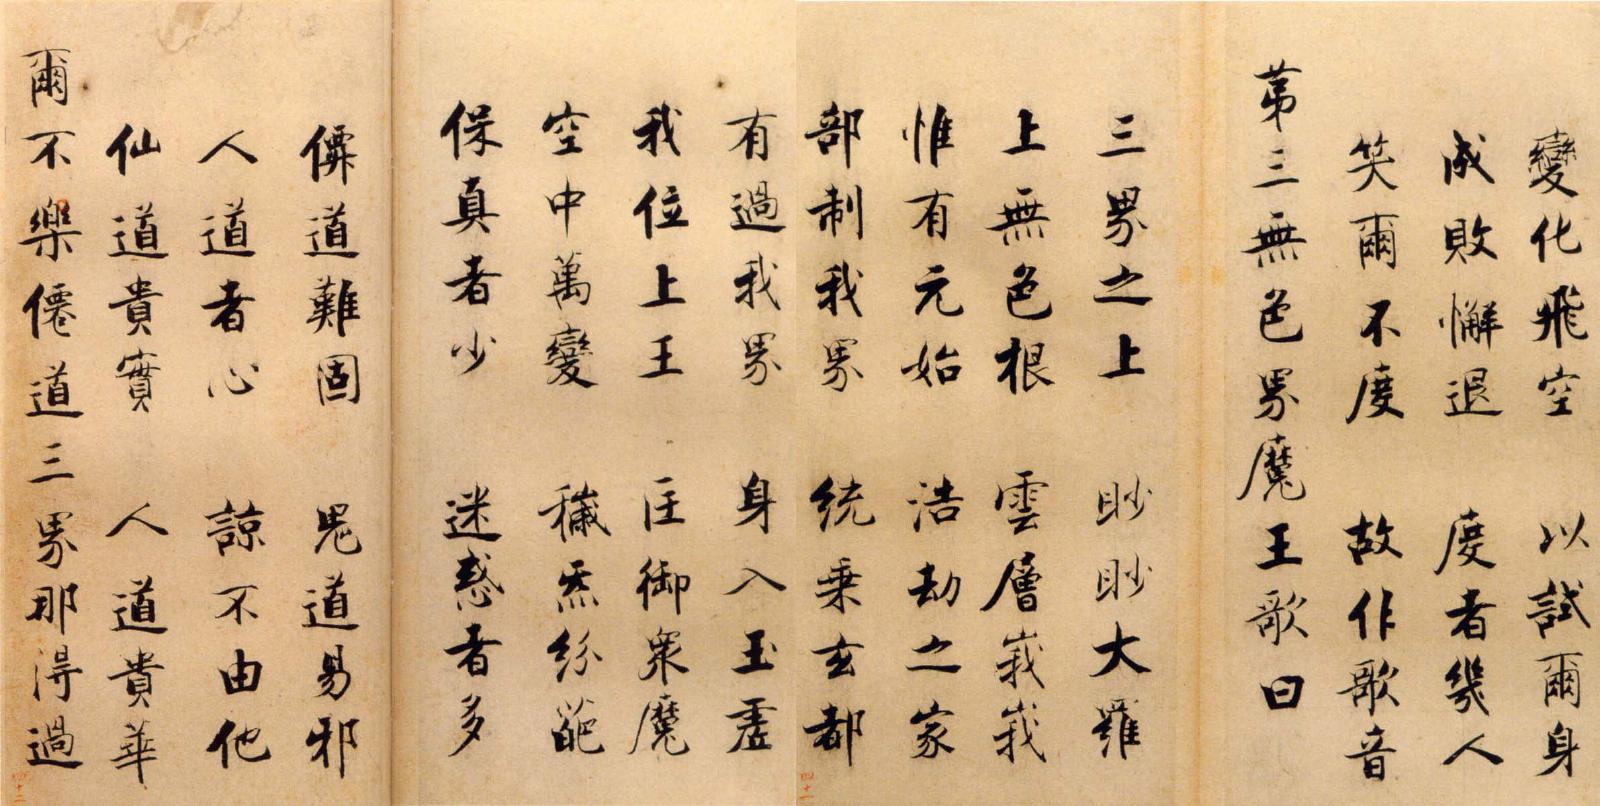 變化飛空 以試爾身
成敗懈退 度者幾人
笑爾不度 故作歌音
苐三無色界魔王歌曰
三界之上 眇眇大羅
上無色根 雲層峩峩
惟有元始 浩劫之家
部制我界 統乗玄都
有過我界 身入玉虛
我位上王 匡御衆魔
空中萬變 穢炁紛葩
保真者少 迷惑者多
僊道難固 鬼道易邪
人道者心 諒不由他
仙道貴實 人道貴華
爾不樂僊道三界那得過
四十一
四十二